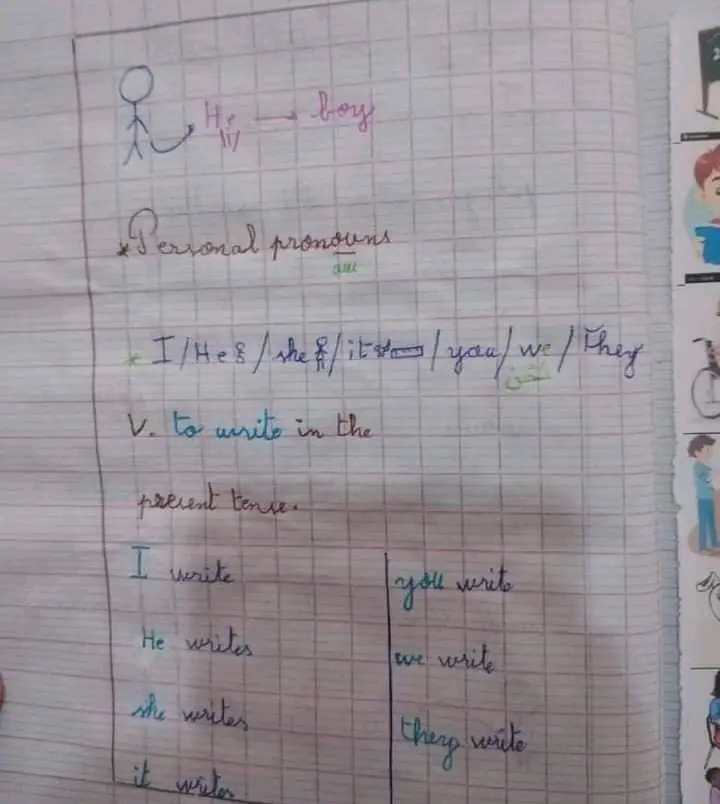 He → boy
* Personal pronouns
au
* I / He / she / it / you / we / They
نحن
V. to write in the
present tense.
I write
He writes
she writes
it writes
you write
we write
they write